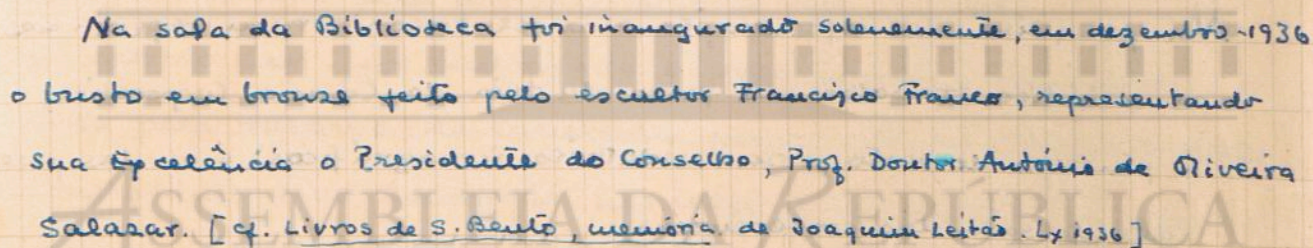 Na sala da Biblioteca foi inaugurado solenemente, em dezembro-1936
o busto em bronze feito pelo escultor Francisco Franco, representando
sua Excelência o Presidente do Conselho, Prof. Doutor António de Oliveira
Salazar. [cf. Livros de S. Bento, memória de Joaquim Leitão. Lx 1936]
ASSEMBLEIA DA REPÚBLICA